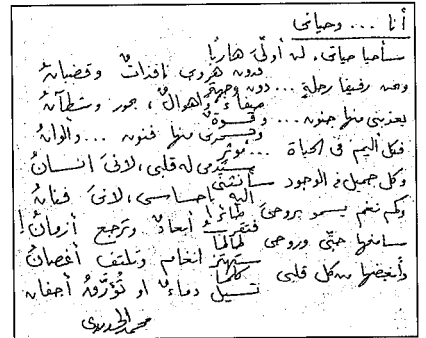 أنا ... وحياتى
سأحيا حياتى، لن أولّىَ هاربًا
فدون هروبى نافذاتٌ وقضبانُ
وهى رفيقا رحلةٍ ... دون
صفاءٌ وأهوالٌ، بحور وشطآنُ
يعذبنى منها جنون ... وقسوةٌ
منها فنون ... وألوانُ
فكل أليم فى الحياة ... مؤثر
له قلبى، لأنىَ انسانُ
وكل جميل فى الوجود سأنتشى
إليه بإحساسى، لأنىَ فنانُ
وكم نغم يسمو بروحىَ
أبعادٌ وترجع أزمانُ!
سامنحها حبّى وروحى طالما
ستهتز أنغام وتلتف أغصانُ
وأبغضها من كل قلبى كلما
تسيل دماءٌ او تُؤرَّقُ أجفان
محمد